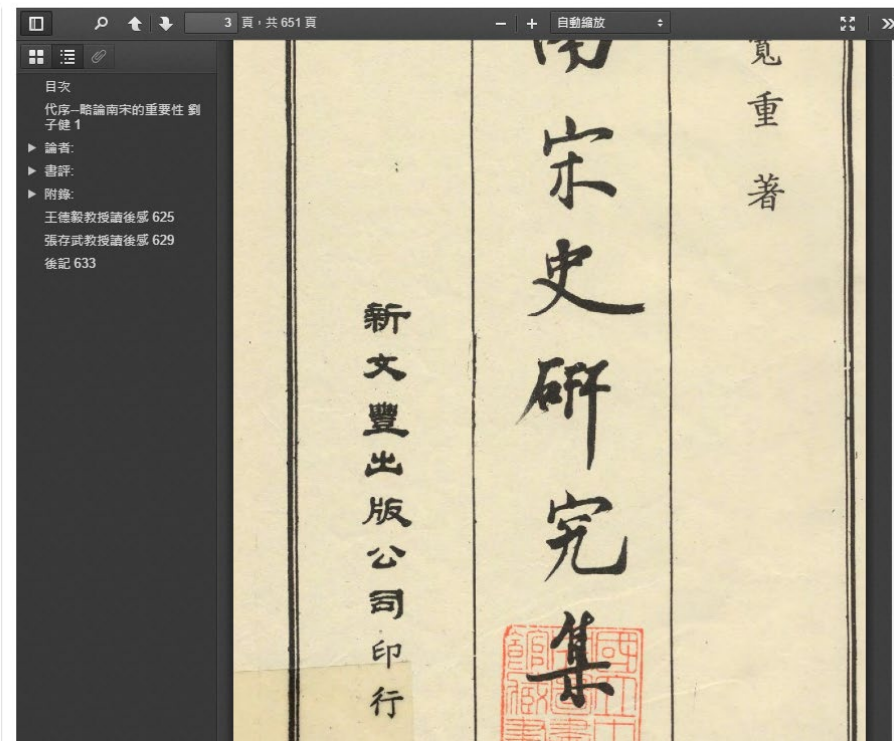 3 頁，共 651 頁
自動縮放
目次
代序--略論南宋的重要性 劉
子健 1
論者:
書評:
附錄:
王德毅教授讀後感 625
張存武教授讀後感 629
後記 633
寬重著
南宋史研究集
新文豐出版公司印行